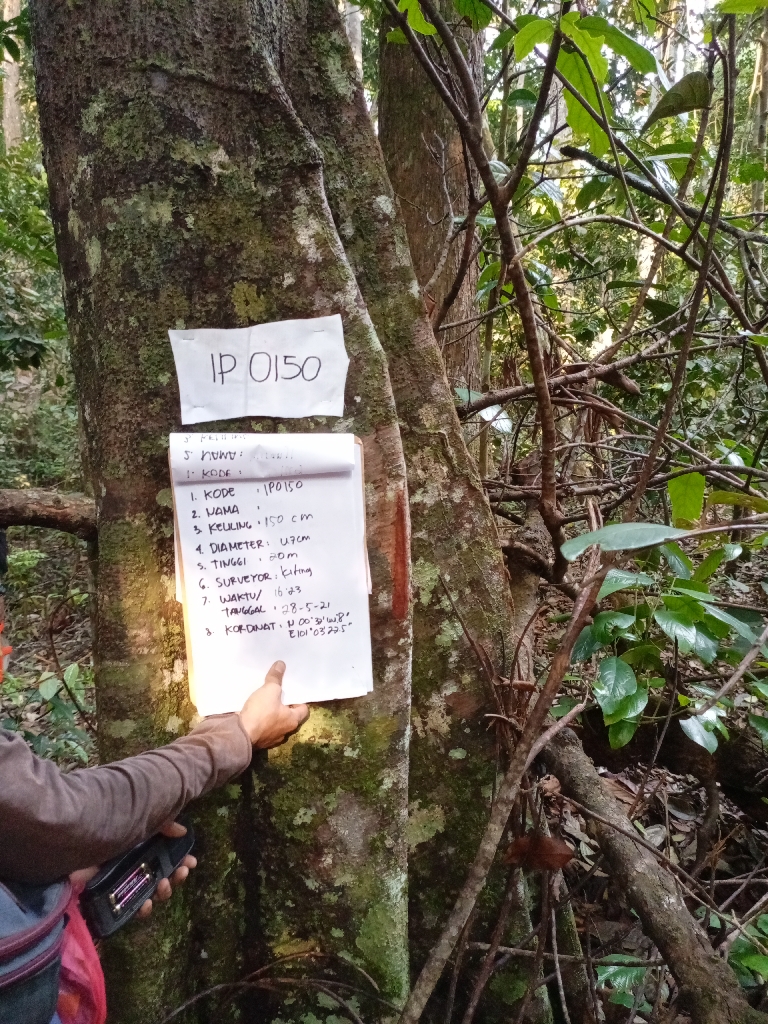 IP 0150
5. NAMA :
1. KODE :
1. KODE : IP0150
2. NAMA :
3. KELILING : 150 cm
4. DIAMETER : 47cm
5. TINGGI : 20m
6. SURVEYOR : Kiting
7. WAKTU/ 16.23
TANGGAL : 28-5-21
8. KORDINAT : N 00°32'
E101°03'22.5"